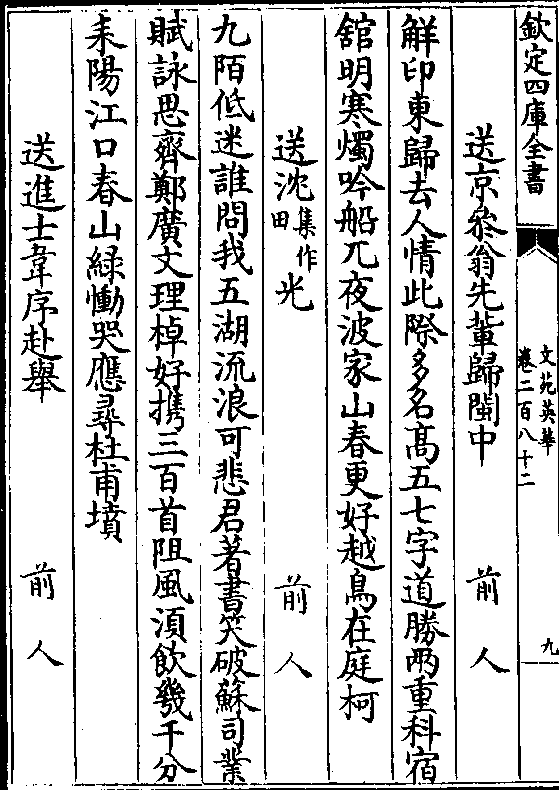 欽定四庫全書
文苑英華
卷二百八十二
九
送京叅翁先軰歸閩中　前人
觧印東歸去人情此際多名髙五七字道勝兩重科宿
舘明寒燭吟船兀夜波家山春更好越鳥在庭柯
送沈集作田光　前人
九陌低迷誰問我五湖流浪可悲君著書笑破蘇司業
賦詠思齊鄭廣文理棹好擕三百首阻風湏飲幾千分
耒陽江口春山緑慟哭應尋杜甫墳
送進士韋序赴舉　前人